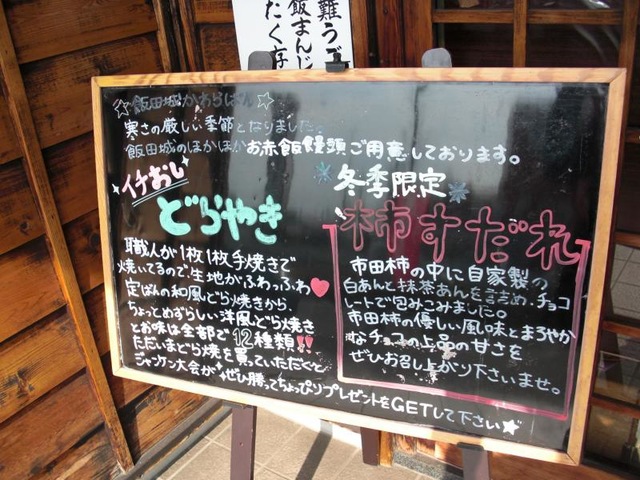 難う
飯まんじ
たく存
☆飯田城かわらばん☆
寒さの厳しい季節となりました。
飯田城のほかほかお赤飯饅頭ご用意しております。
イチおし
どらやき
職人が1枚1枚手焼きで
焼いてるので生地がふわっふわ♥
定ばんの和風どら焼きから、
ちょっとめずらしい洋風どら焼き
とお味は全部で12種類!!
ただいまどら焼を買っていただくと
ジャンケン大会が
ぜひ勝ってちょっぴりプレゼントをGETして下さい★
冬季限定
柿すだれ
市田柿の中に自家製の
白あんと抹茶あんを詰め、チョコ
レートで包みこみました。
市田柿の優しい風味とまろやか
なチョコの上品の甘さを
ぜひお召し上がり下さいませ。